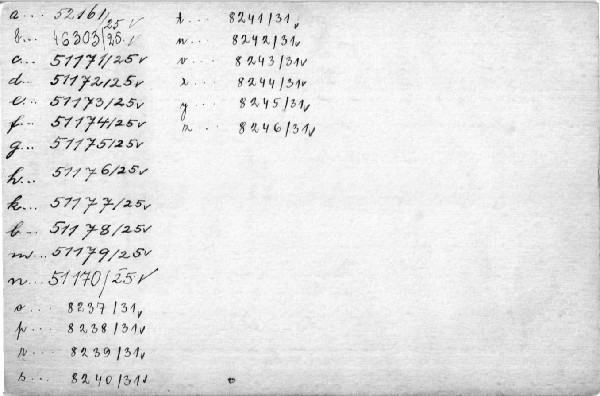 a... 52161/25 v
b... 46303/25 v
c... 51171/25 v
d... 51172/25 v
e... 51173/25 v
f... 51174/25 v
g... 51175/25
h... 51176/25 v
k... 51177/25 v
l... 51178/25 v
m... 51179/25 v
n... 51170/25 v
o... 8237/31 v
p... 8238/31 v
r... 8239/31 v
s... 8240/31 v
t... 8241/31 v
u... 8242/31 v
v... 8243/31 v
x... 8244/31 v
y... 8245/31 v
z... 8246/31 v